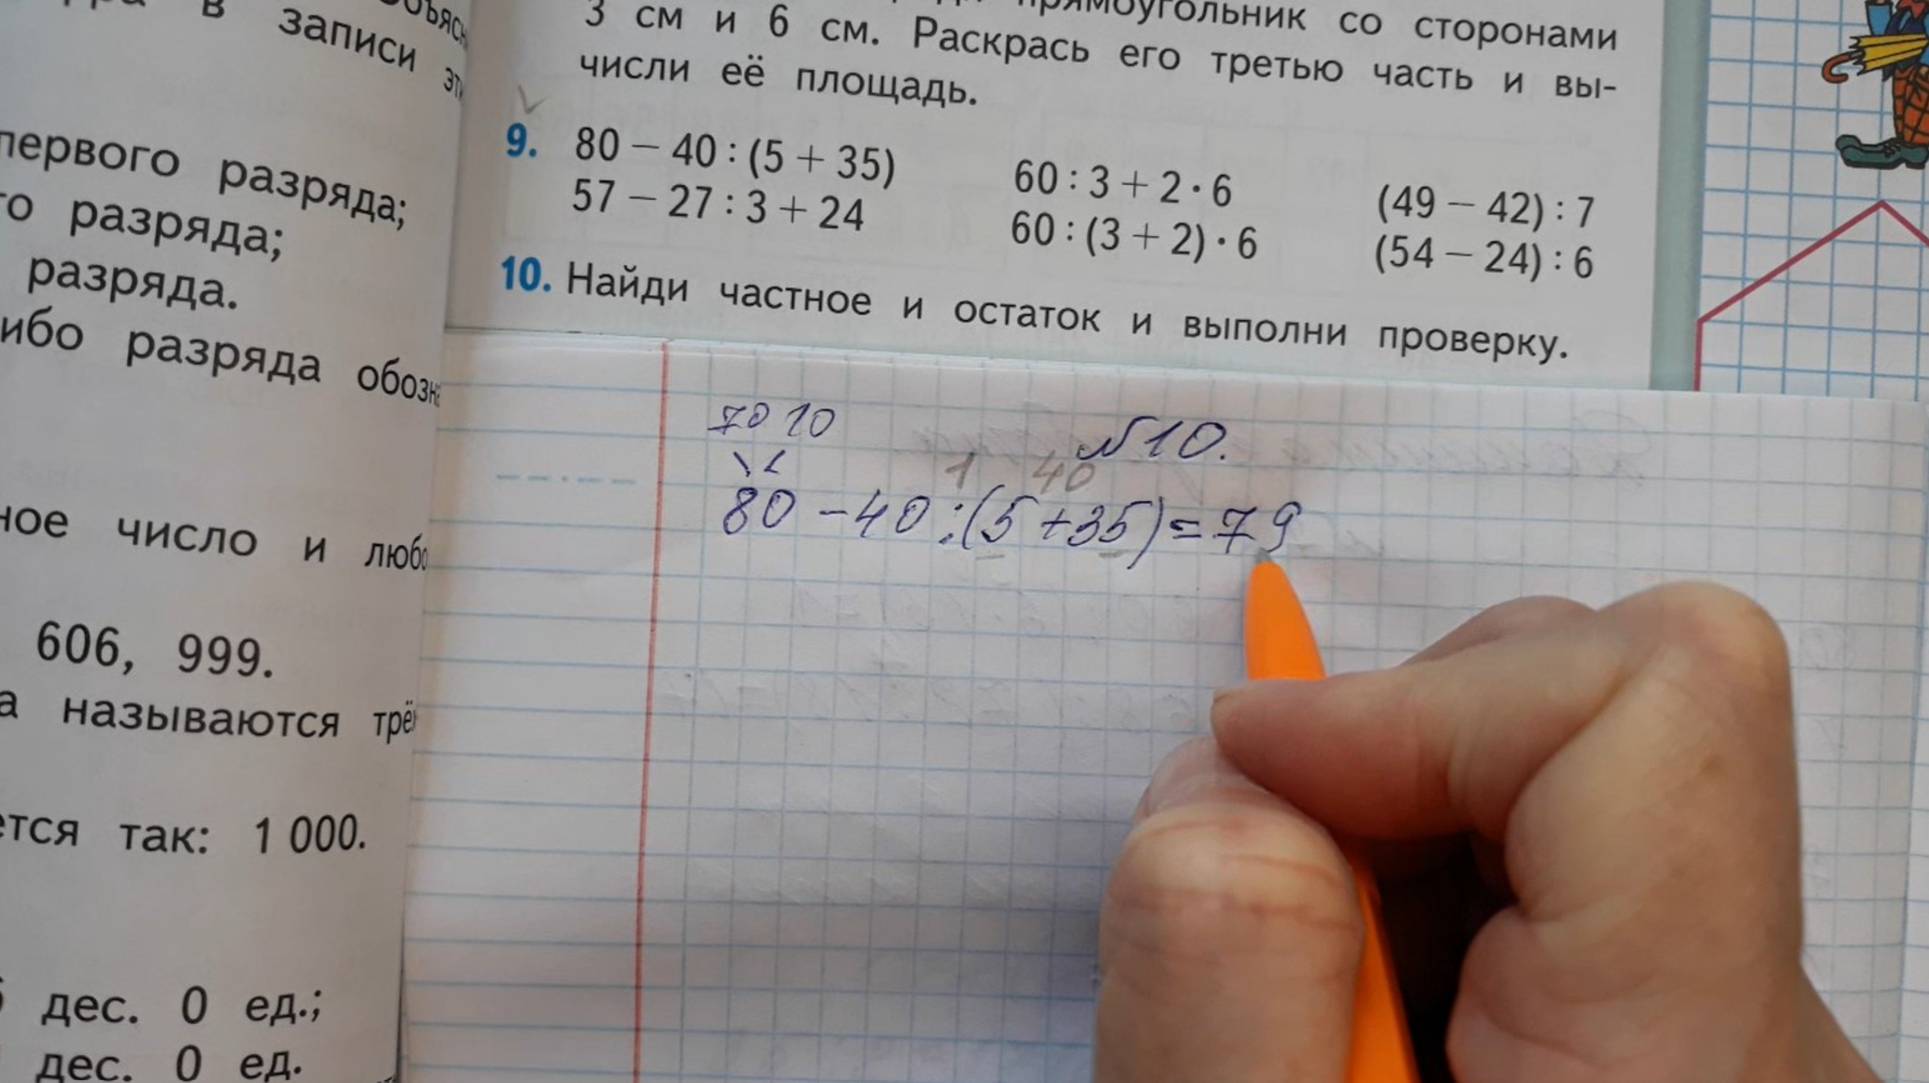 в записи
первого разряда;
разряда;
разряда.
разряда
число и
606, 999.
называются
так: 1 000.
дес. 0 ед.;
дес. 0 ед.
прямоугольник со сторонами
3 см и 6 см. Раскрась его третью часть и вы-
числи её площадь.
9. 80 − 40 : (5 + 35) 60 : 3 + 2 · 6 (49 − 42) : 7
57 − 27 : 3 + 24 60 : (3 + 2) · 6 (54 − 24) : 6
10. Найди частное и остаток и выполни проверку.
70 10 №10.
1 40
80 − 40 : (5 + 35) = 79